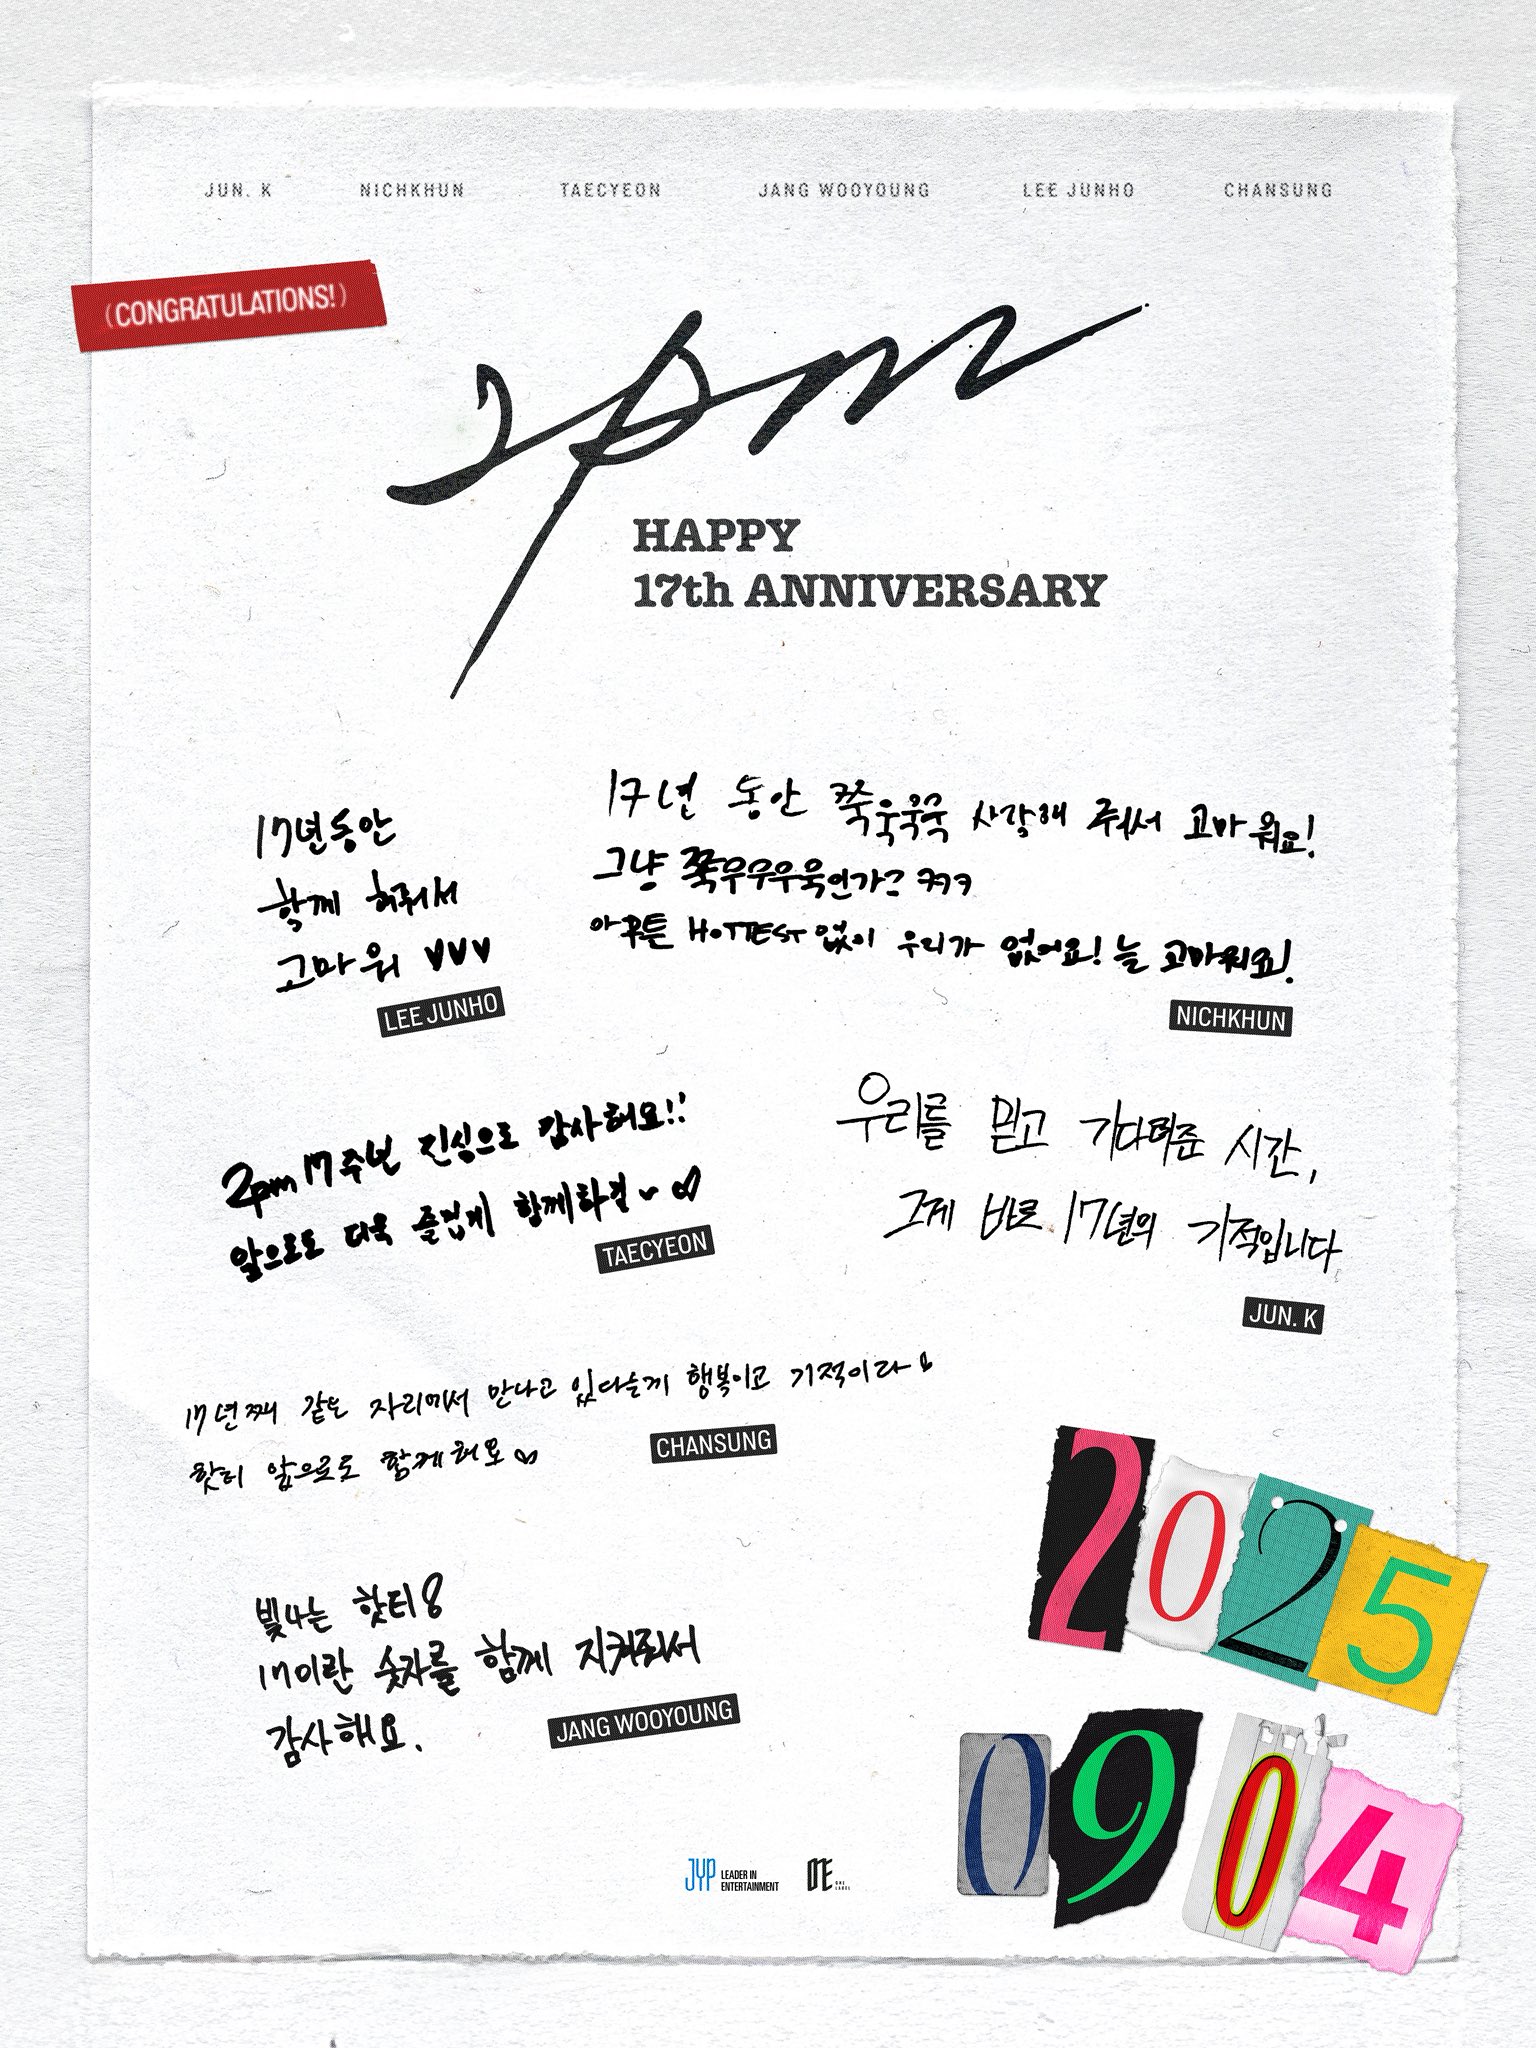 JUN. K NICHKHUN TAECYEON JANG WOOYOUNG LEE JUNHO CHANSUNG
(CONGRATULATIONS!)
2pm
HAPPY
17th ANNIVERSARY
17년동안
함께 해줘서
고마워 ♥♥♥
LEE JUNHO
17년 동안 쭉욱욱욱 사랑해 줘서 고마워요!
그냥 쭉우우우욱인가? ㅋㅋㅋ
아무튼 HOTTEST 없이 우리가 없어요! 늘 고마워요!
NICHKHUN
2pm 17주년 진심으로 감사해요!!
앞으로도 더욱 즐겁게 함께하길~ ♡
TAECYEON
우리를 믿고 기다려준 시간,
그게 바로 17년의 기적입니다
JUN. K
17년째 같은 자리에서 만나고 있다는게 행복이고 기적이라♡
핫티 앞으로도 함께해요♡
CHANSUNG
빛나는 핫티
17이란 숫자를 함께 지켜줘서
감사해요.
JANG WOOYOUNG
2025
0904
JYP LEADER IN
ENTERTAINMENT
ONE
LABEL